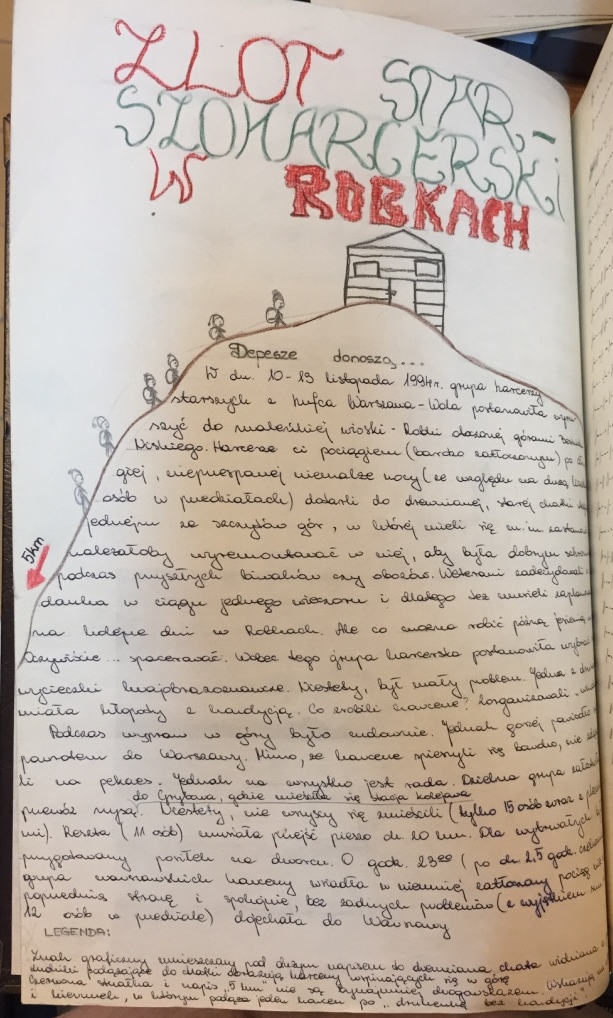 ZLOT STAR-
SZOHARCERSKI
W ROBKACH
Depesze donoszą...
W dn. 10-13 listopada 1994r. grupa harcerzy
starszych z hufca Warszawa-Wola postanowiła wyru
szyć do maleńkiej wioski - Robki otoczonej górami Beskidu
Niskiego. Harcerze ci pociągiem (bardzo zatłoczonym) po
giej, nieprzespanej niemalże nocy (ze względu na dużą
osób w przedziałach) dotarli do drewnianej, starej chatki
jednym ze szczytów gór, w której mieli się m.in. zastanowić
należałoby wyremontować w niej, aby była dobrym
podczas przyszłych biwaków czy obozów. Weterani zadecydowali
danku w ciągu jednego wieczoru i dlatego też musieli
na kolejne dni w Robkach. Ale co można robić późną jesienią
Oczywiście... spacerować. Wobec tego grupa harcerska postanowiła wybrać
wycieczki krajobrazoznawcze. Niestety, był mały problem. Jedna z
miała kłopoty z kondycją. Co zrobili harcerze? Zorganizowali
Podczas wypraw w góry było cudownie. Jednak gorzej
powrotem do Warszawy. Mimo, że harcerze spieszyli się bardzo, nie
li na pekaes. Jednak na wszystko jest rada. Dzielna grupa
do Grybowa, gdzie mieściła się stacja kolejowa
przewóz nysą. Niestety, nie wszyscy się zmieścili (tylko 15 osób wraz z
mi). Reszta (11 osób) musiała przejść pieszo ok. 20 km. Dla wytrwałych
przygotowany posiłek na dworcu. O godz. 23⁰⁰ (po ok. 2,5 godz.
grupa warszawskich harcerzy wsiadła w niemniej zatłoczony pociąg
poprzednią stronę i spokojnie, bez żadnych problemów (z wyjątkiem
12 osób w przedziale) dojechała do Warszawy
LEGENDA:
Znak graficzny umieszczony pod dużym napisem to drewniana chata
Ludziki podążające do chatki obrazują harcerzy wspinających się w górę
Czerwona strzałka i napis "5 km" nie są bynajmniej drogowskazem. Wskazują
i kierunek, w którym podąża jeden harcerz po "bez kondycji".
5km